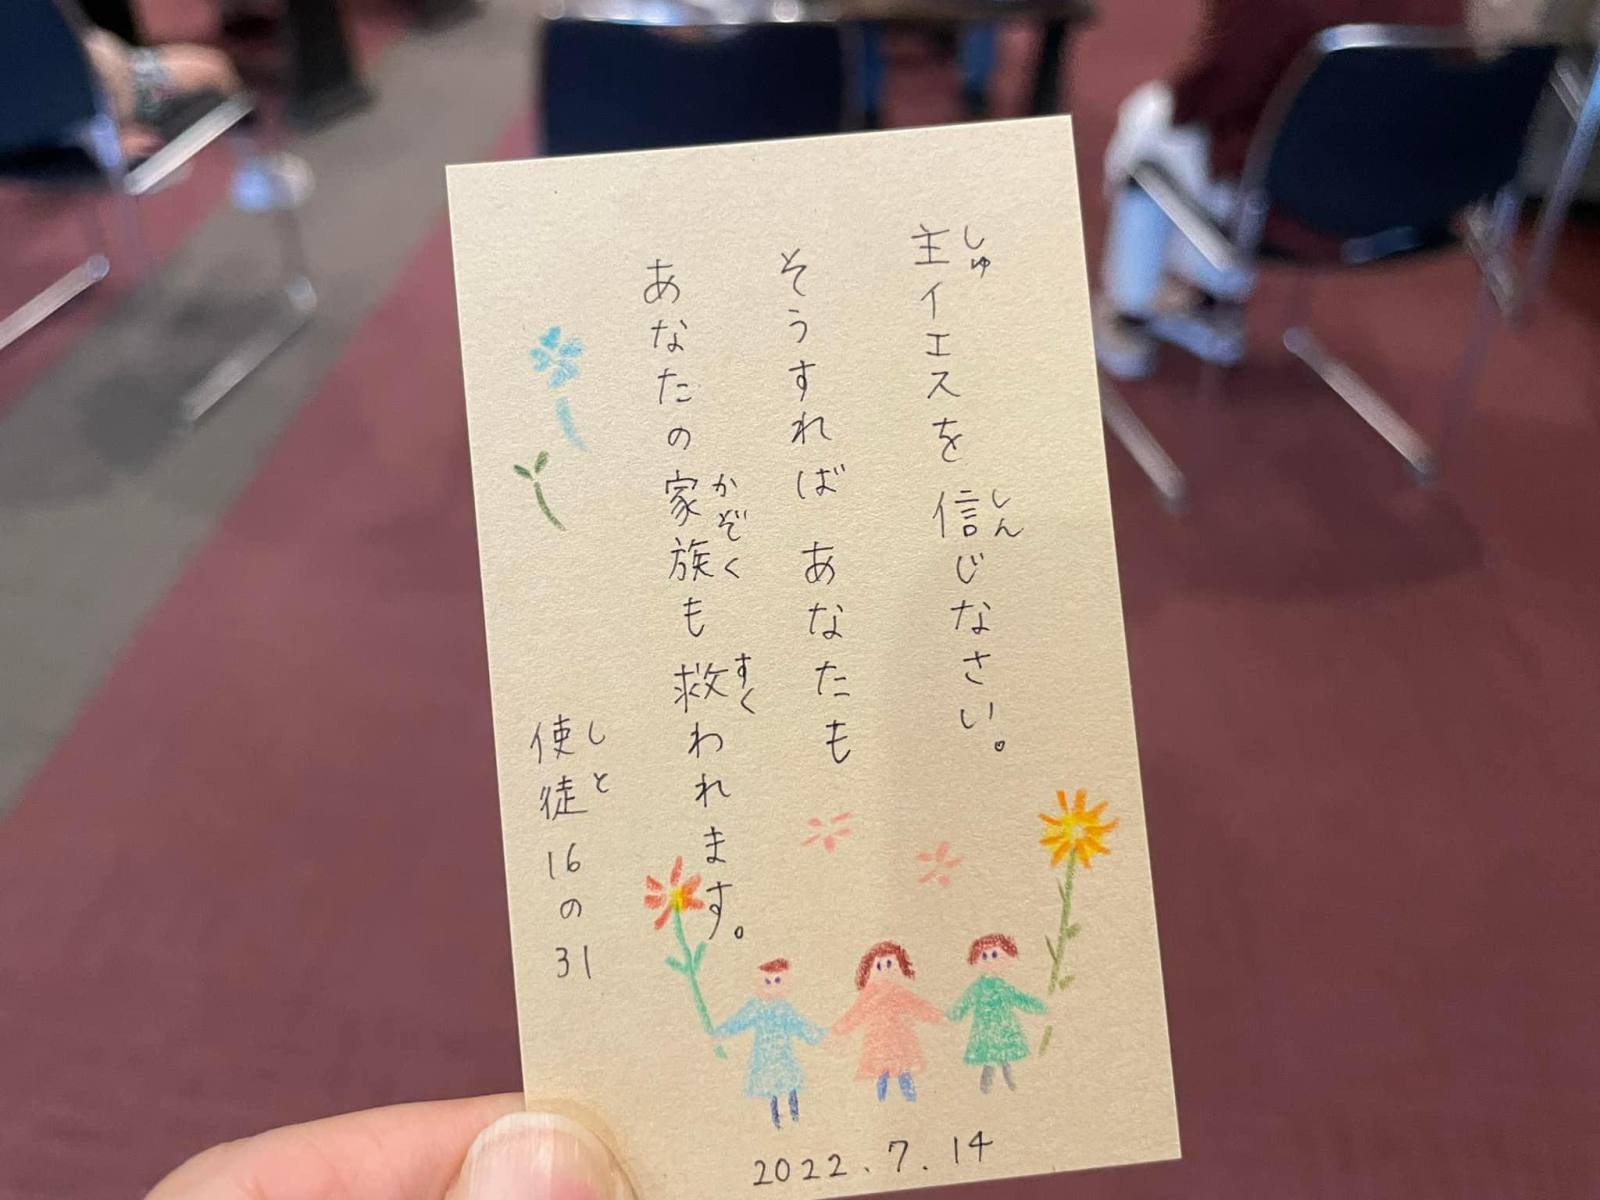 主イエスを信じなさい。
しゅ
しん
そうすれば あなたも
あなたの家族も救われます。
かぞく
すく
使徒16の31
しと
2022.7.14